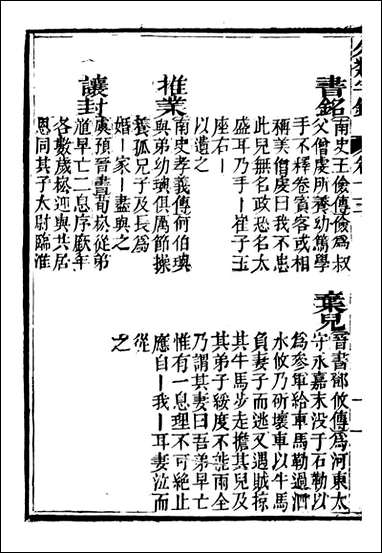 卷十三
書銘
南史王儉傳儉為叔
父僧虔所養幼篤學
手不釋卷賓客或相
稱美僧虔曰我不患
此兒無名政恐名太
盛耳乃手一崔子玉
座右一
以遺之
推業
南史孝義傳何伯璵
與弟幼璵俱厲節操
養孤兄子及長爲
婚一家一盡與之
讓封
虞預晉書荀崧從弟
道早亡二息序廞年
各數歲崧迎與共居
恩同其子太尉臨淮
棄兒
晉書鄧攸傳爲河東太
守永嘉末没于石勒以
爲參軍給車馬勒過泗
水攸乃斫壞車以牛馬
負妻子而逃又遇賊掠
其牛馬步走擔其兒及
其弟子綏度不能兩全
乃謂其妻曰吾弟早亡
惟有一息理不可絶止
應自一我一耳妻泣而
從
之